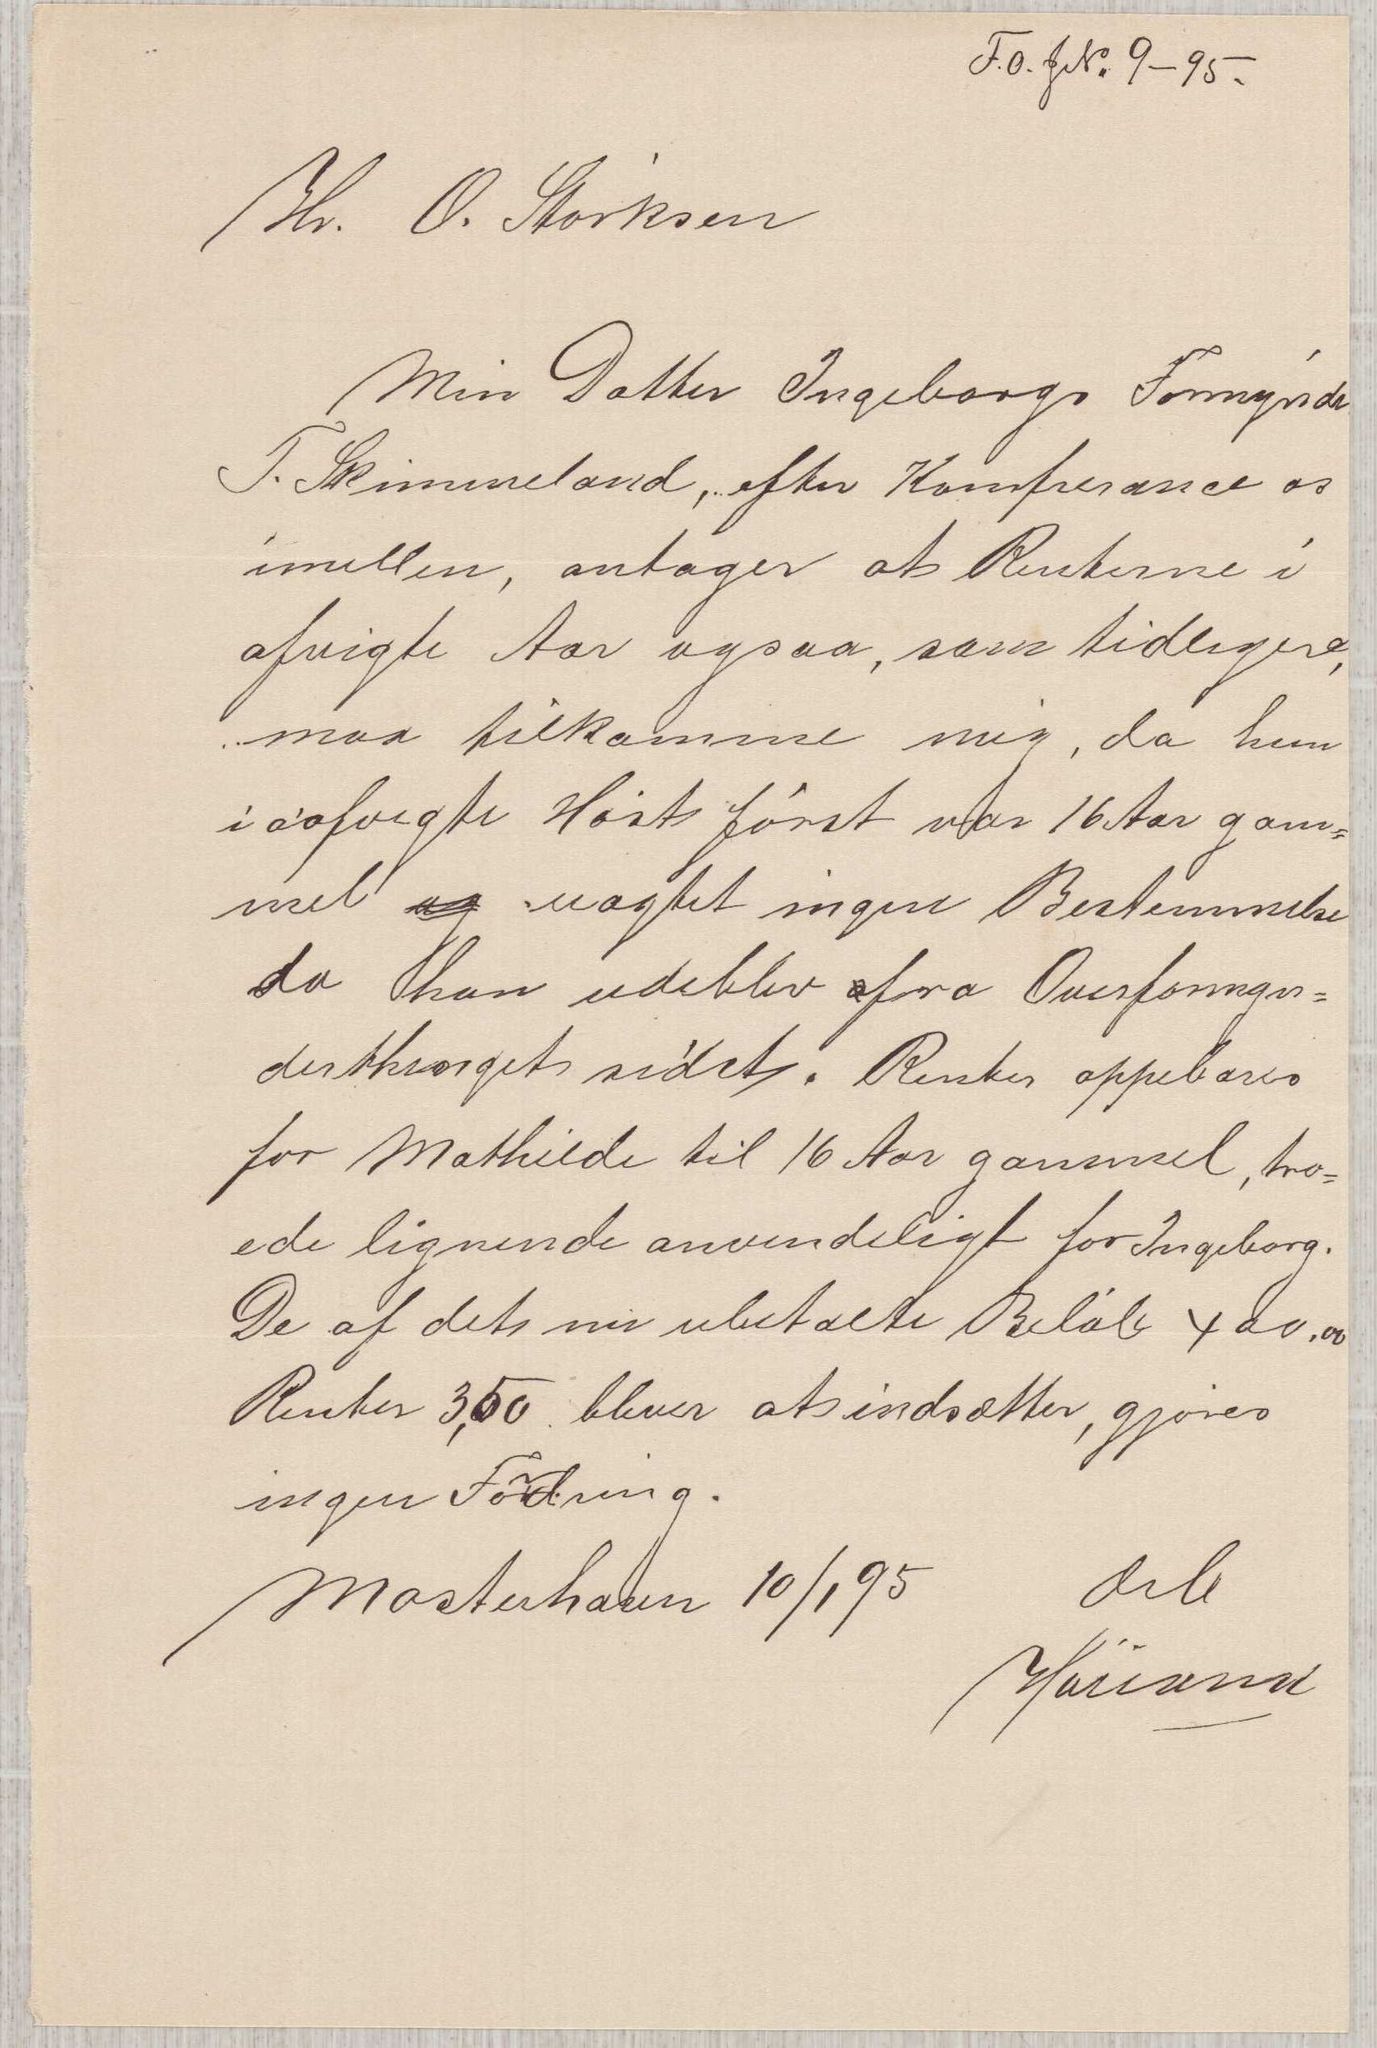 F.O. J№. 9-95.
Hr. O. Störksen
Min Datter Ingeborgs Formynder
T. Skimmeland, efter Konfreranse os
imellen, antager at Renterne i
afvigte Aar ogsaa, som tidligere,
maa tilkomme mig, da hun
i afvigte Höst först var 16 Aar gam=
mel uagtet ingen Bestemmelse
da han udeblev fra Overformyn=
dertheorgets sidst. Renter oppebares
for Mathilde til 16 Aar gammel, tro=
ede lignende anvendeligt for Ingeborg.
De af det nu ubetalte Belöb 400.00
Renter 3,50 bliver at indsætter, gjöres
ingen Fordring.
Mosterhavn 10/1 95 Ærb